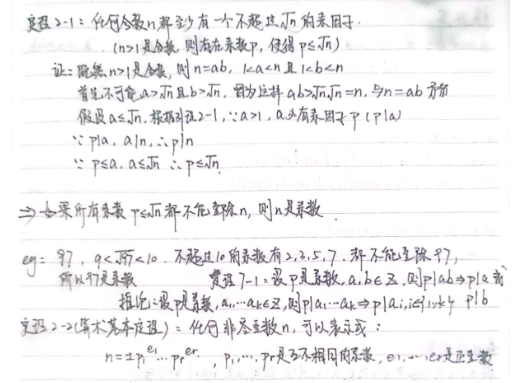 定理2-1：任何合数n都至少有一个不超过√n的素因子.
(n>1是合数, 则存在素数p, 使得p≤√n)
证：既然n>1是合数, 则n=ab, 1<a<n且1<b<n
首先不可能a>√n且b>√n, 因为这样ab>√n√n=n, 与n=ab矛盾
假设a≤√n, 根据引理2-1, ∵a>1, a必有素因子p (p|a)
∵p|a, a|n, ∴p|n
∵p≤a, a≤√n ∴p≤√n
⇒如果所有素数p≤√n都不能整除n, 则n是素数.
eg: 97, 9<√97<10. 不超过10的素数有2,3,5,7. 都不能整除97,
所以97是素数 定理7-1=设p是素数, a,b∈Z, 则p|ab⇒p|a或p|b
推论：设p是素数, a₁,…aₖ∈Z, 则p|a₁…aₖ⇒p|aᵢ, i∈{1,…k}
定理2-2(算术基本定理)：任何非零整数n, 可以表示成：
n=±p₁^e₁…pr^er, p₁,…,pr是互不相同的素数, e₁,…er是正整数